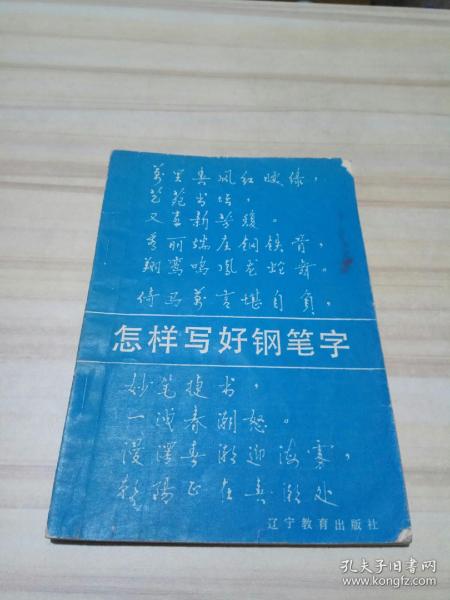 万里春风红映绿，
艺苑书坛，
又立新芳馥。
秀丽端庄钢铁骨，
翔鸾鸣凤龙蛇舞。
倚马万言堪自负，
怎样写好钢笔字
妙笔捷书，
一浅春潮怒。
漫漫春潮迎海雾，
春潮处
辽宁教育出版社
孔夫子旧书网
www.kongfz.com